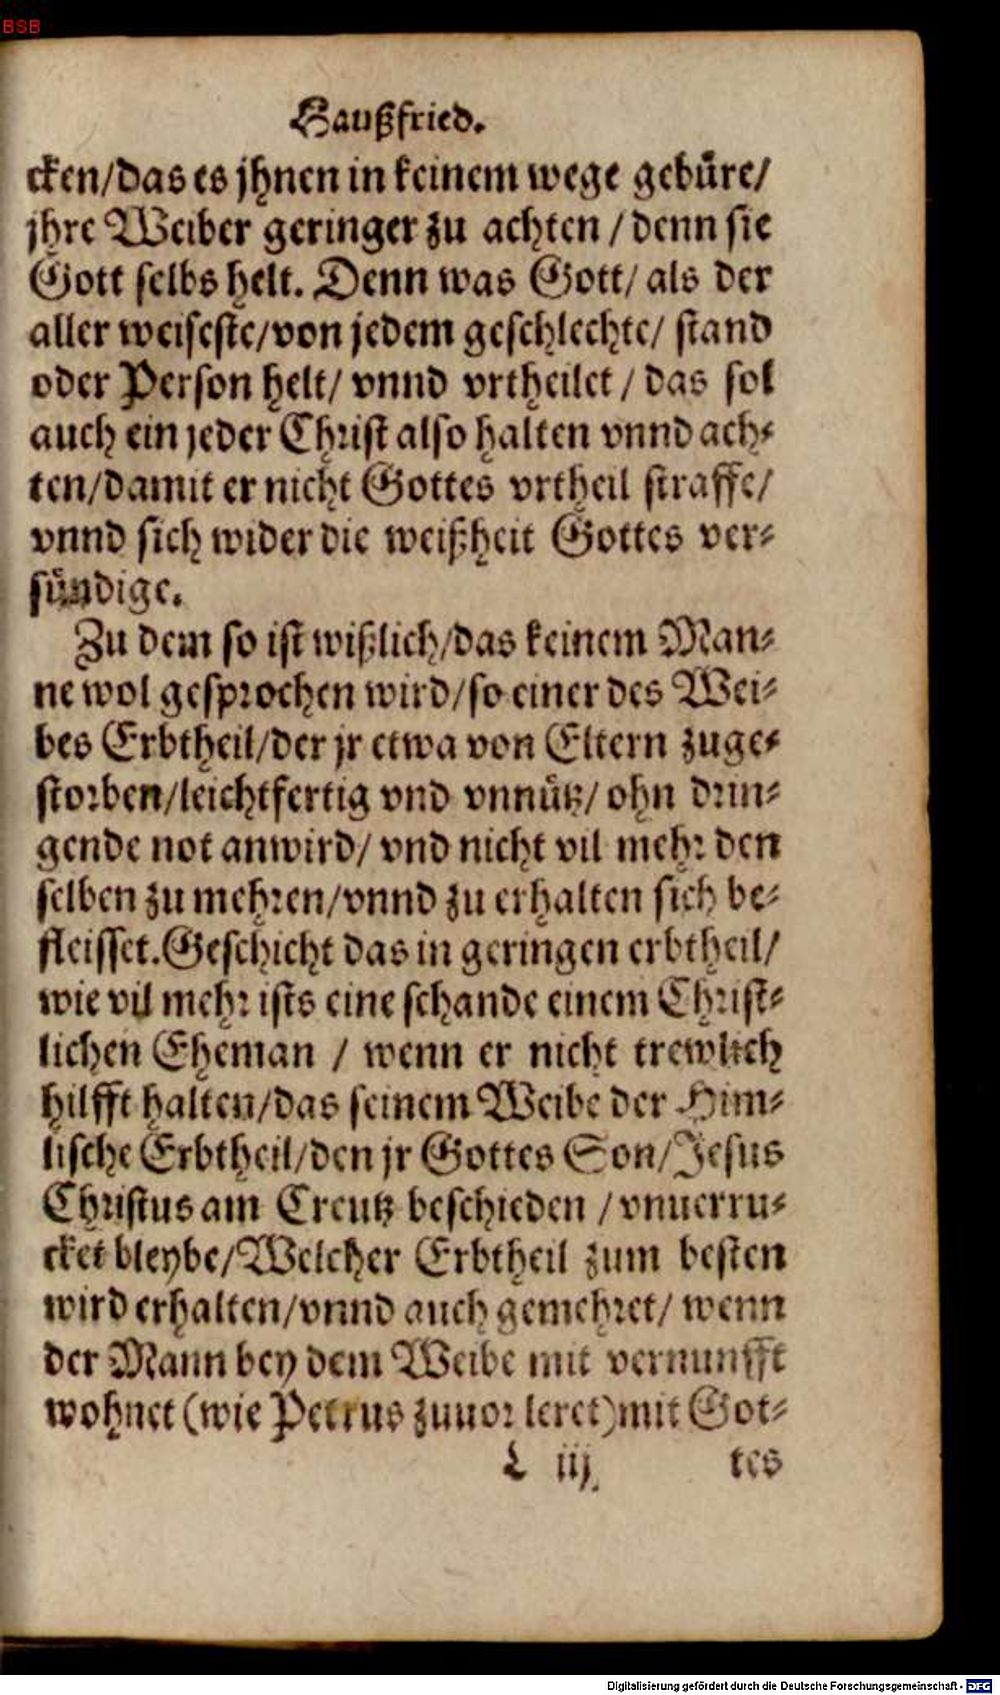 BSB
Haußfried.
cken/das es jhnen in keinem wege gebüre/
jhre Weiber geringer zu achten / denn sie
Gott selbs helt. Denn was Gott/ als der
aller weiseste/von jedem geschlechte/ stand
oder Person helt/ vnnd vrtheilet / das sol
auch ein jeder Christ also halten vnnd ach-
ten/damit er nicht Gottes vrtheil straffe/
vnnd sich wider die weißheit Gottes ver-
sündige.
Zu dem so ist wißlich/das keinem Man-
ne wol gesprochen wird/so einer des Wei-
bes Erbtheil/der jr etwa von Eltern zuge-
storben/leichtfertig vnd vnnütz/ ohn drin-
gende not anwird/ vnd nicht vil mehr den
selben zu mehren/vnnd zu erhalten sich be-
fleisset. Geschicht das in geringen erbtheil/
wie vil mehr ists eine schande einem Christ-
lichen Eheman / wenn er nicht trewlich
hilfft halten/das seinem Weibe der Him-
lische Erbtheil/den jr Gottes Son/Jesus
Christus am Creutz beschieden / vnuerru-
cket bleybe/Welcher Erbtheil zum besten
wird erhalten/vnnd auch gemehret/ wenn
der Mann bey dem Weibe mit vernunfft
wohnet (wie Petrus zuuor leret)mit Got-
L iij. tes
Digitalisierung gefördert durch die Deutsche Forschungsgemeinschaft - DFG